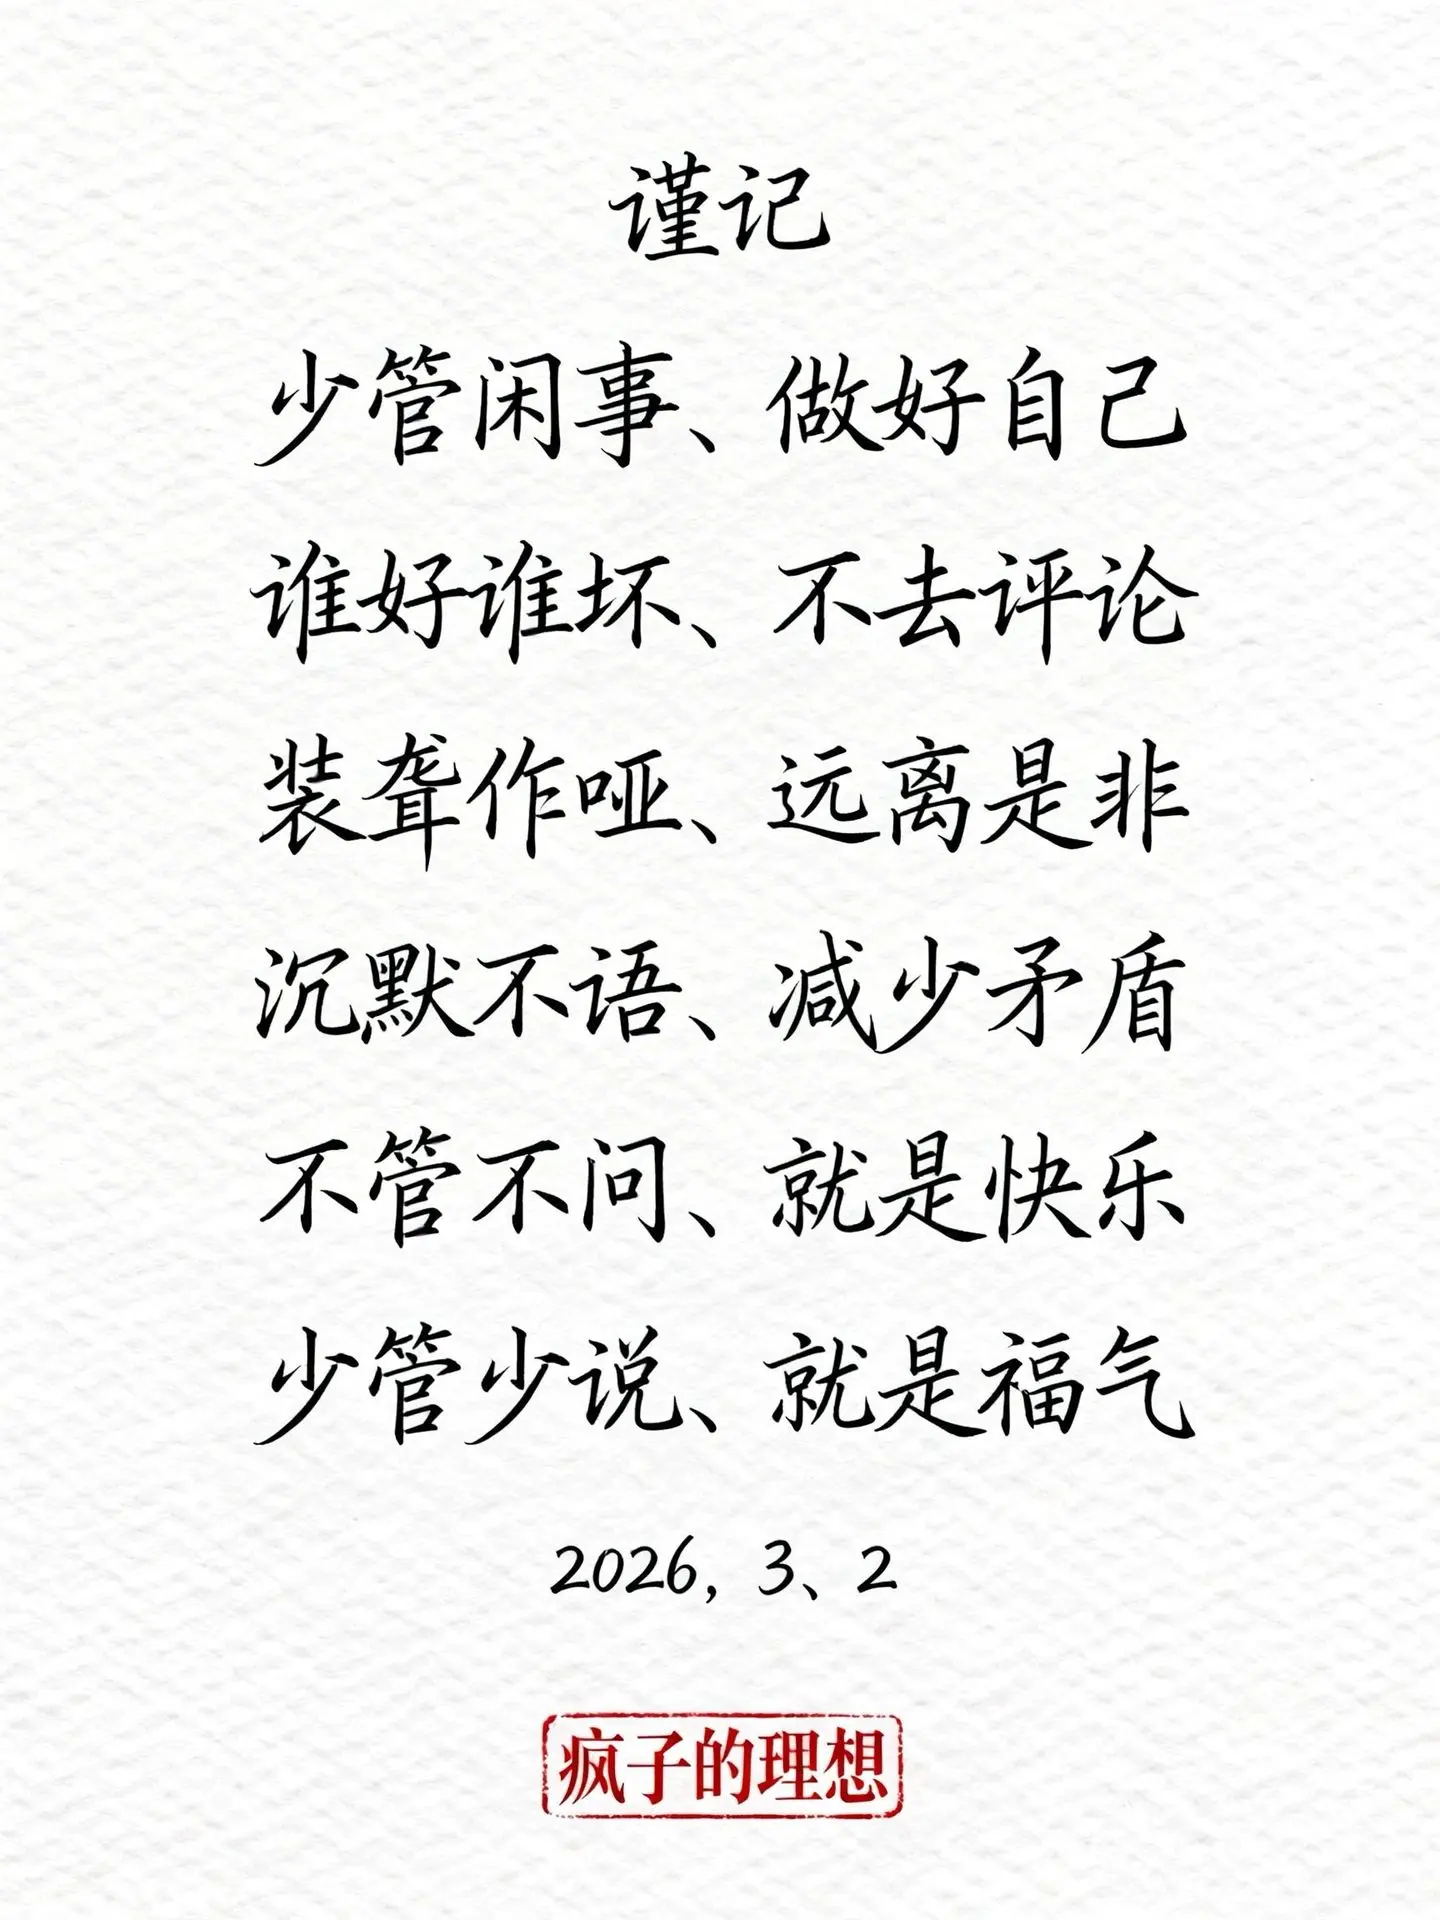 谨记
少管闲事、做好自己
谁好谁坏、不去评论
装聋作哑、远离是非
沉默不语、减少矛盾
不管不问、就是快乐
少管少说、就是福气
2026，3、2
疯子的理想